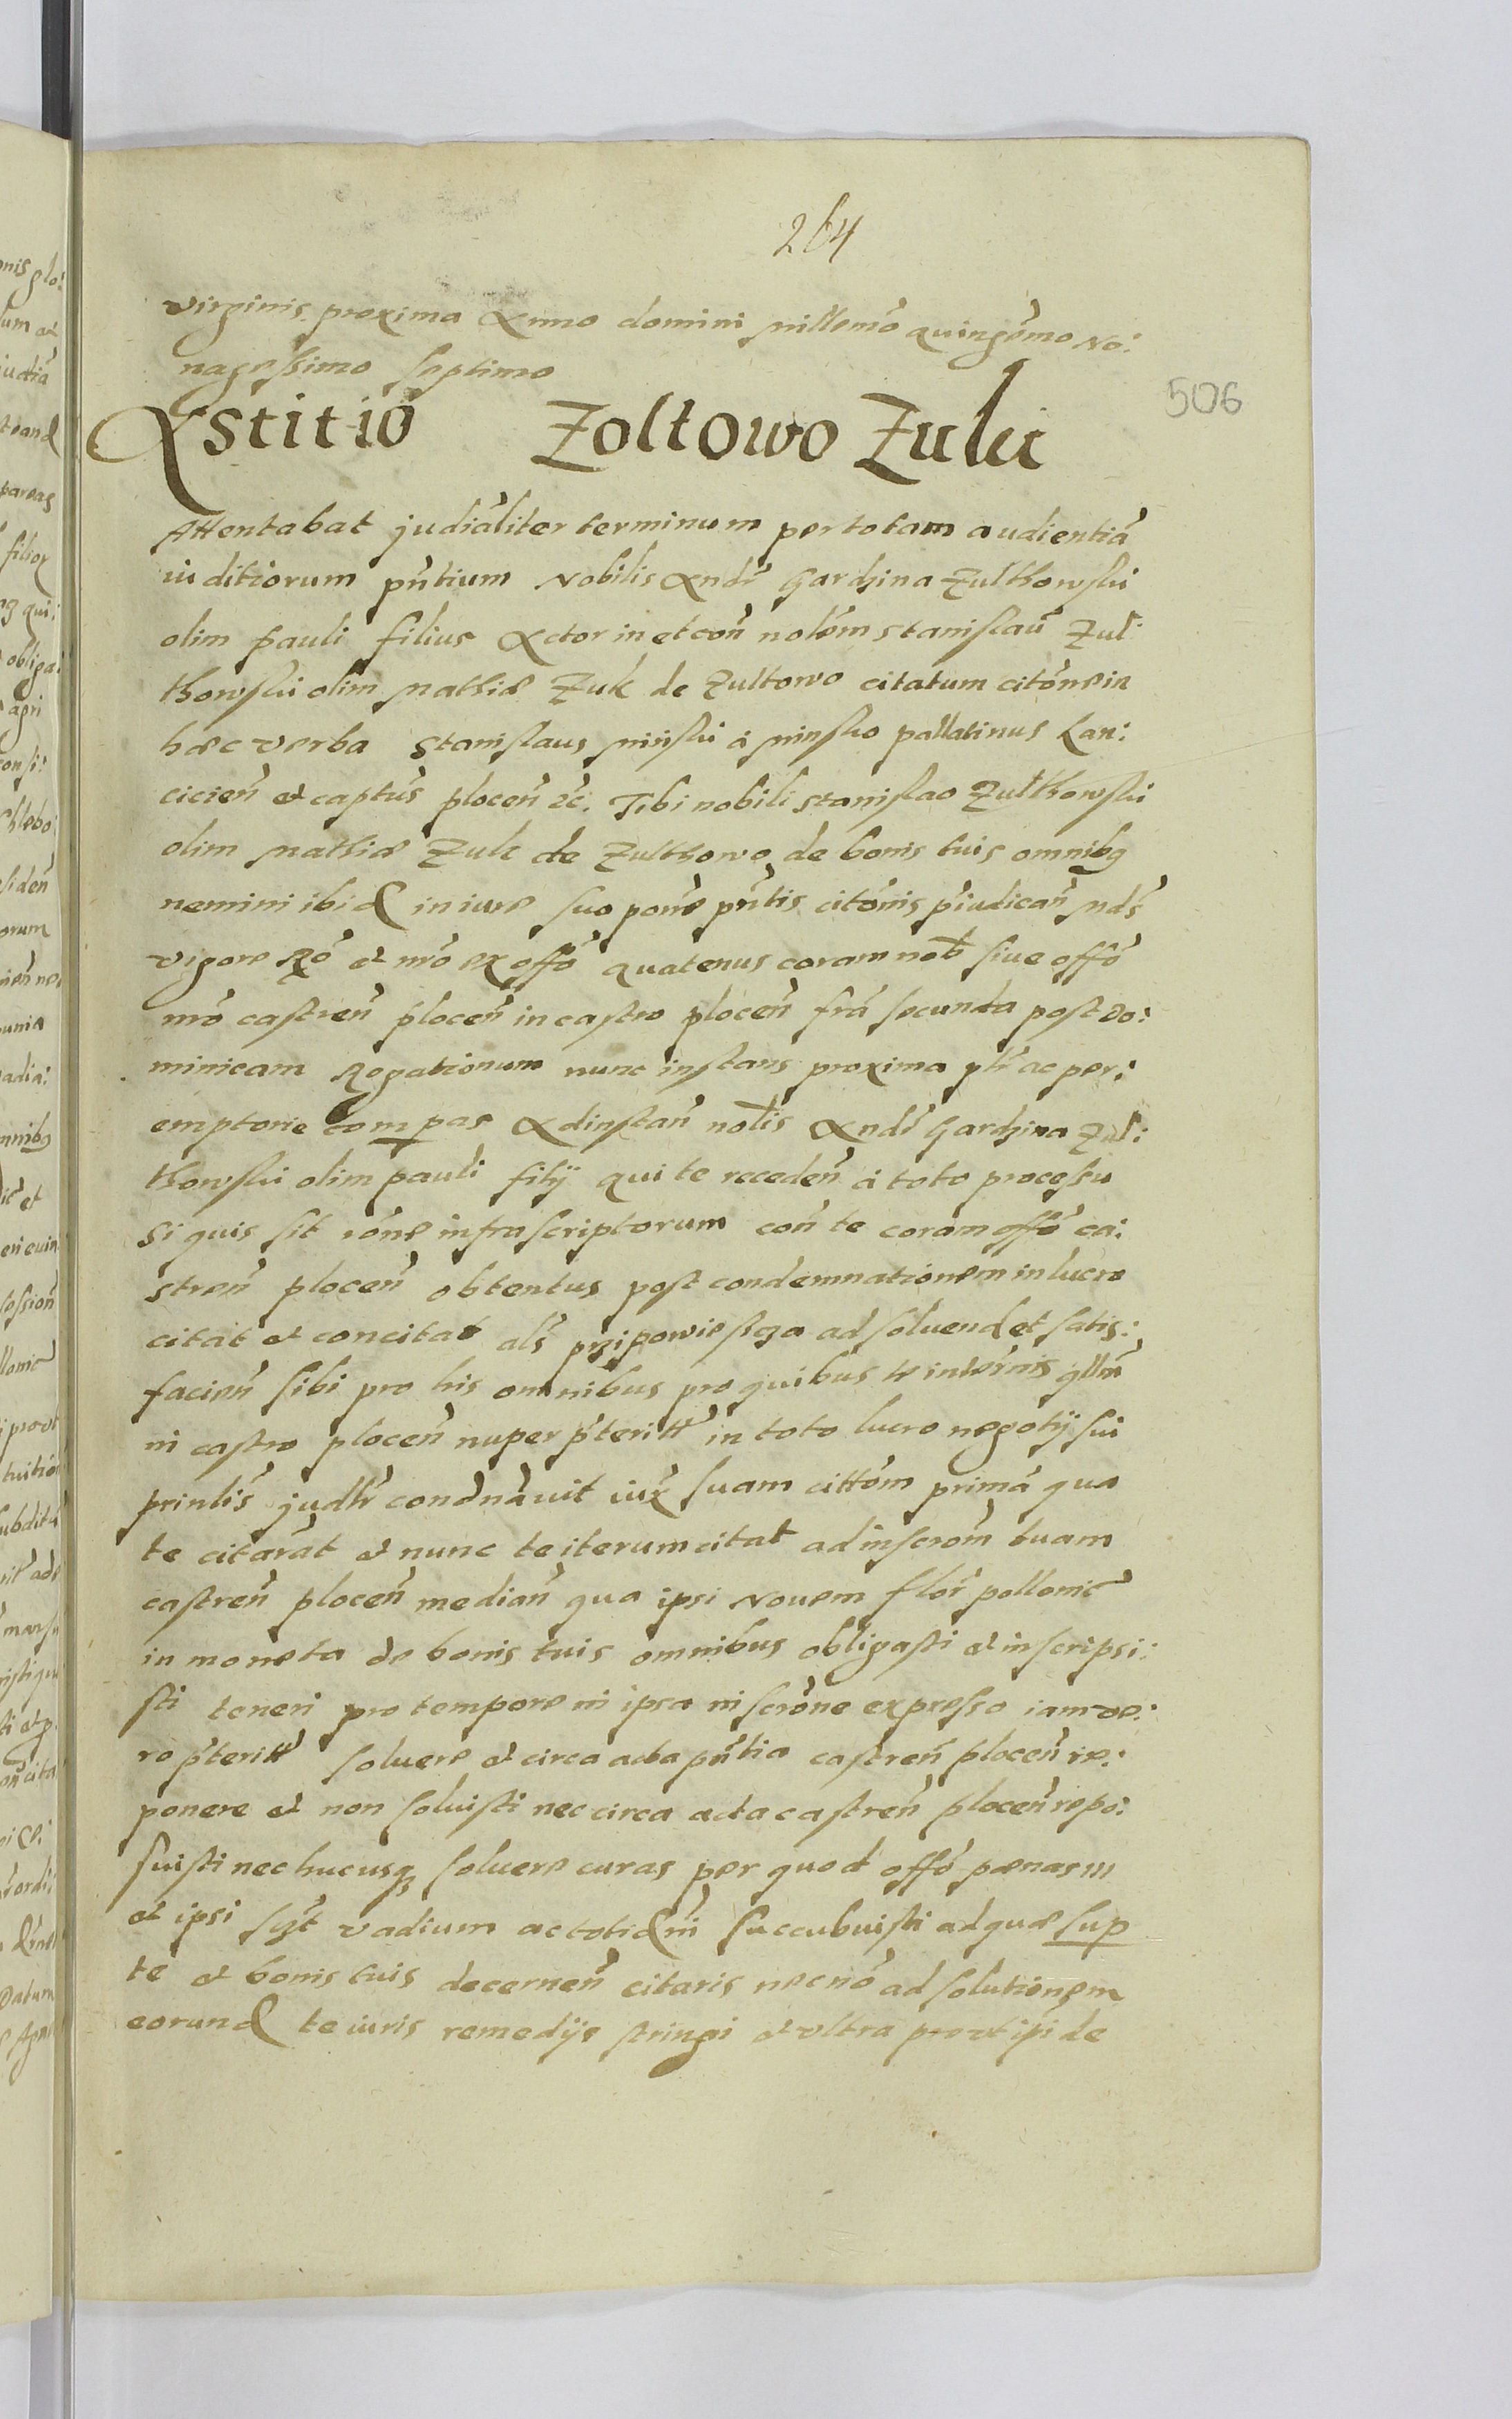 264
virginis proxima Anno domini millemo quingemo No:
nagessimo septimo
506
Astitio Zoltowo Zuki
Attentabat judialiter terminum per totam audientia
iuditiorum pntium Nobilis Andr Gardzina Zulthowski
olim Pauli filius Actor in et con nolem Stanislau Zul:
thowski olim Mathiæ Zuk de Zultowo citatum citone in
hæc verba Stanislaus Minski a Minsko pallatinus Lan:
cicien et captus plocen &c. Tibi nobili Stanislao Zulthowski
olim Mathiæ Zuk de Zulthowo de bonis tuis omnibq
nemini ibid in iure suo pone pntis citonis piudican Mds
vigore Ro et nro ex offo quatenus coram nob siue offo
nro castren plocen in castro plocen fra secunda post Do:
minicam Rogationum nunc instans proxima ptr ac per:
emptorie compas Ad instan nolis Andr Gardzina Zul:
thowski olim Pauli filij qui te receden a toto processu
si quis sit rone infrascriptorum con te coram offo ca:
stren plocen obtentus post condemnationem in lucro
citat et concitat als przipowiescza ad soluend et satis:
facien sibi pro his omnibus pro quibus te in termis qllm
in castro plocen nuper pteritt in toto lucro negotij sui
prinlis judltr condnauit iux suam cittom prima qua
te citarat et nunc te iterum citat ad inscrom tuam
castren plocen median qua ipsi Nouem flor pollonic
in moneta de bonis tuis omnibus obligasti et inscripsi:
sti teneri pro tempore in ipsa inscrone expresso iam ve:
ro pteritt soluere et circa acta pntia castren plocen re:
ponere et non soluisti nec circa acta castren plocen repo:
suisti nec hucusq soluere curas per quod offo pænas m
et ipsi szt vadium ac totidm succubuisti ad quæ sup
te et bonis tuis decernen citaris necno ad solutionem
eorund te iuris remedijs stringi et vltra prout ipi de